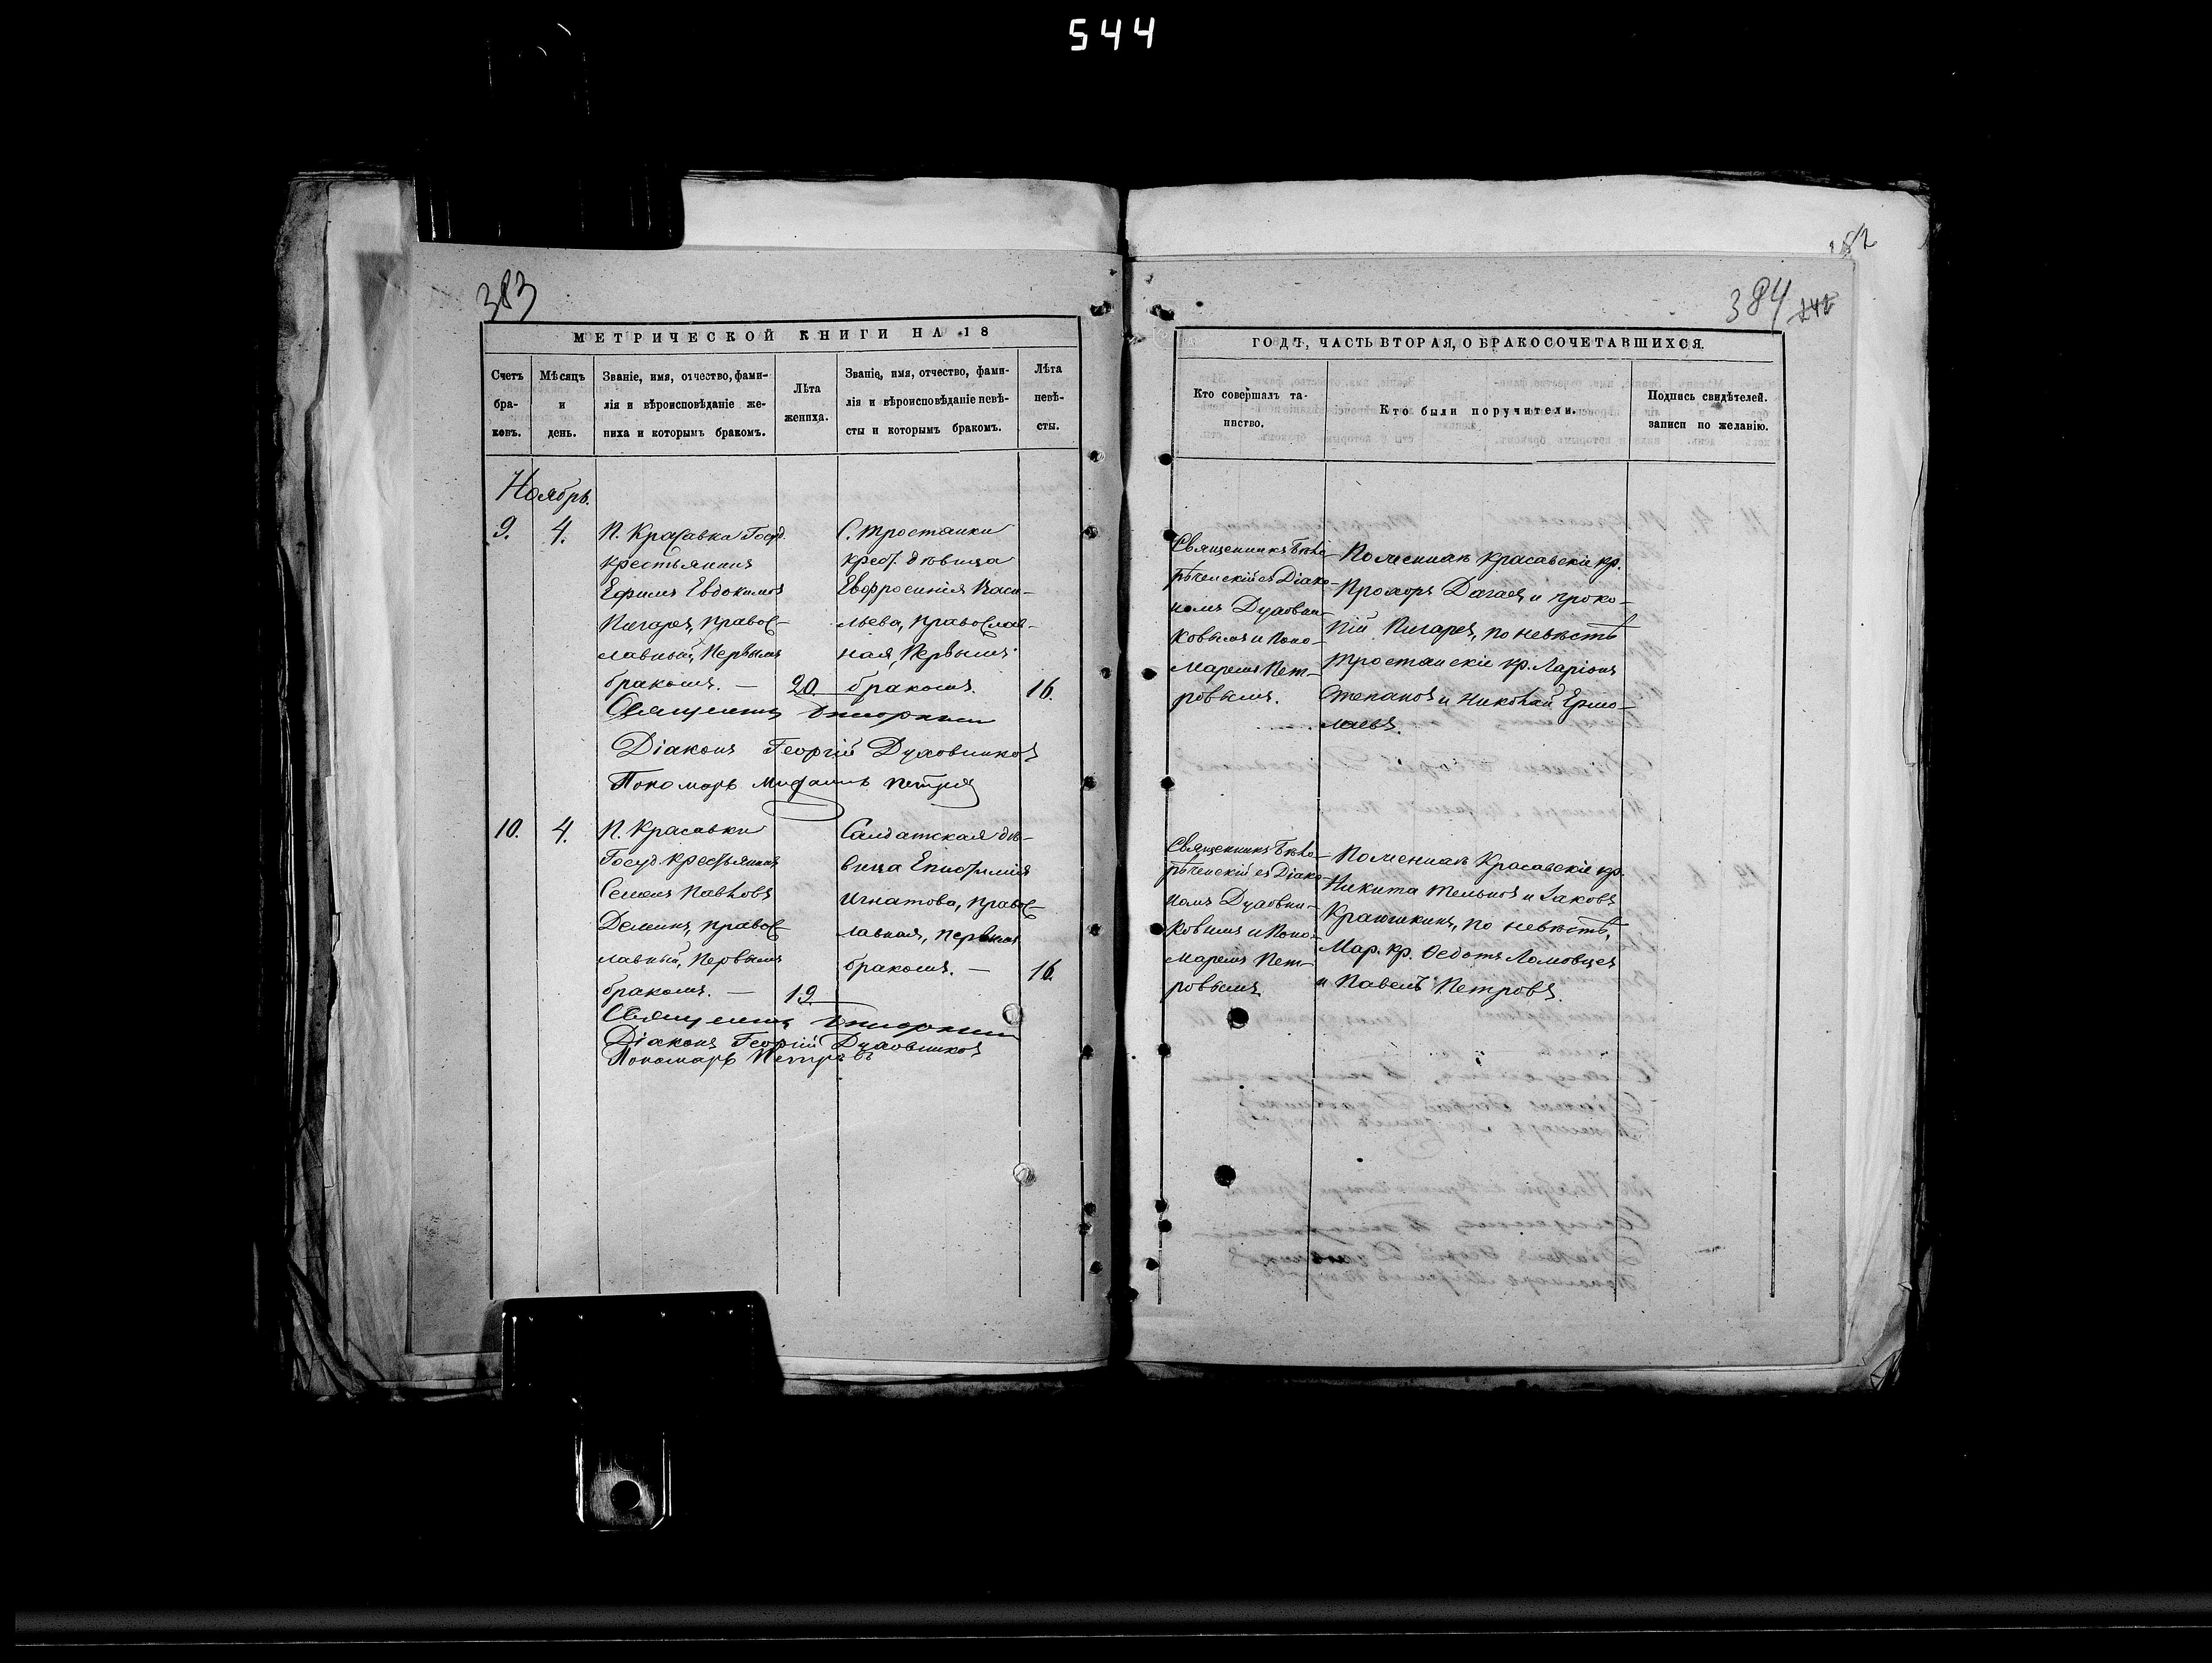 544
383
МЕТРИЧЕСКОЙ КНИГИ НА 18
Счетъ бра-ковъ.
Мѣсяцъ и день.
Званіе, имя, отчество, фами-
лія и вѣроисповѣданіе же-
ниха и которымъ бракомъ.
Лѣта жениха.
Званіе, имя, отчество, фами-
лія и вѣроисповѣданіе невѣ-
сты и которымъ бракомъ.
Лѣта невѣ-сты.
Ноябрь.
9.
4.
П. Красавка Госуд.
крестьянинъ
Ефимъ Евдокимовъ
Пигаревъ, правос-
лавный, Первымъ
бракомъ. —
20.
С. Тростанки
крест. дѣвица
Евфросинія Васи-
льева, православ-
ная, Первымъ
бракомъ.
16.
Священникъ
Діаконъ Георгій Духовниковъ
Пономарь Митрофанъ Петровъ
10.
4.
П. Красавки
Госуд. крестьянинъ
Семенъ Павловъ
Деминъ, правос-
лавный, Первымъ
бракомъ. —
19.
Салдатская дѣ-
вица Епистимія
Игнатова, правос-
лавная, первымъ
бракомъ. —
16.
Священникъ
Діаконъ Георгій Духовниковъ
Пономарь Петровъ
182
384
242
ГОДЪ, ЧАСТЬ ВТОРАЯ, О БРАКОСОЧЕТАВШИХСЯ.
Кто совершалъ та-
инство.
Кто были поручители.
Подпись свидѣтелей.
записи по желанію.
Священникъ Бѣло-
рѣченскій съ Діако-
номъ Духовни-
ковымъ и Поно-
маремъ Пет-
ровымъ.
По женихѣ Красавскіе кр.
Прохоръ Дагаевъ и Проко-
пій Пигаревъ, по невѣстѣ
Тростанскіе кр. Ларіонъ
Степановъ и Николай Ермо-
лаевъ.
Священникъ Бѣло-
рѣченскій съ Діако-
номъ Духовни-
ковымъ и Поно-
маремъ Пет-
ровымъ.
По женихѣ Красавскіе кр.
Никита Мельновъ и Іаковъ
Краюшкинъ, по невѣстѣ,
Мар. кр. Ѳедотъ Ломовцевъ
и Павелъ Петровъ.